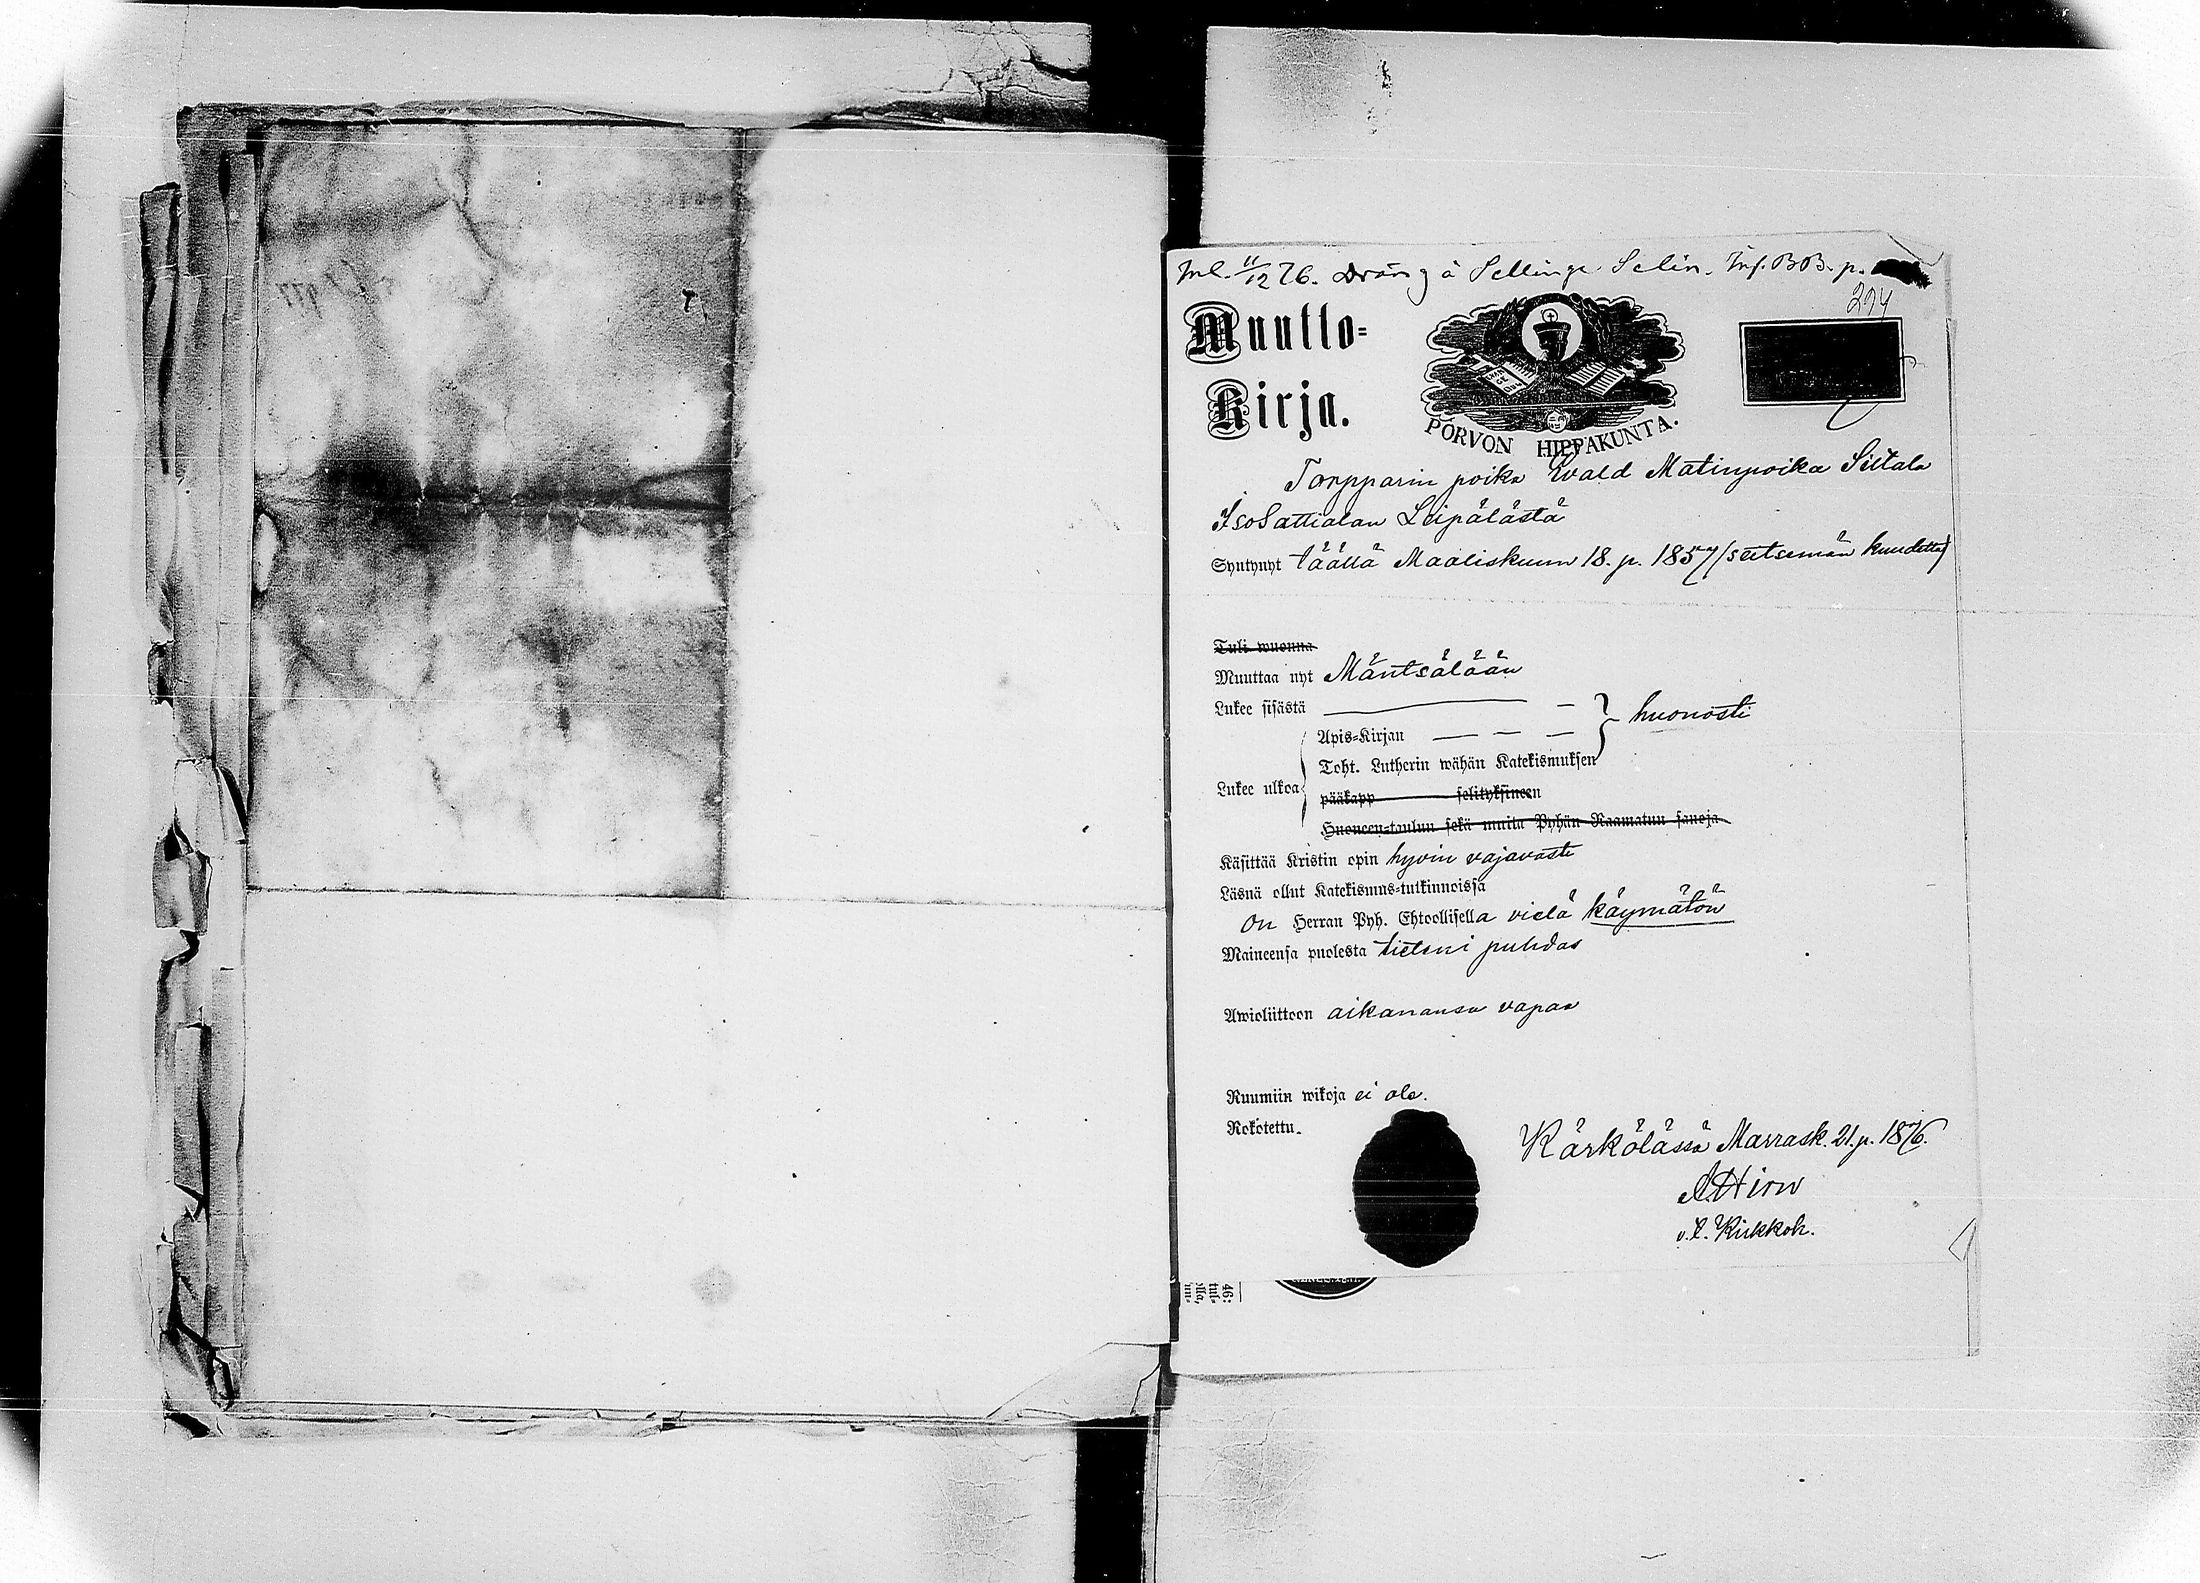 Inl. 11/12 76. Dräng å Sellinge Selin. Inf. BB. p.
294
Muutto=
Kirja.
PORVON HIPPAKUNTA.
Torpparin poika Evald Matinpoika Siltala
IsoSattialan Leipälästä
Syntynyt täällä Maaliskuun 18. p. 1857 (seitsemän kuudetta)
Tuli wuonna
Muuttaa nyt Mäntsälään
Lukee sisästä
huonosti
Apis=Kirjan
Toht. Lutherin wähän Katekismuksen
Lukee ulkoa
pääkapp selityksineen
Huoneen=taulun sekä muita Pyhän Raamatun sanoja
Käsittää Kristin opin hyvin vajavasti
Läsnä ollut Katekismus=tutkinnoissa
On Herran Pyh. Ehtoollisella vielä käymätön
Maineensa puolesta tieteni puhdas
Awioliittoon aikanansa vapaa
Ruumiin wikoja ei ole.
Rokotettu.
Kärkölässä Marrask. 21. p. 1876.
A Hirn
v. t. Kirkkoh.
46: